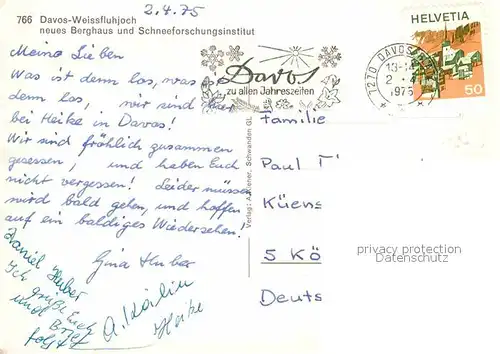 766 Davos-Weissfluhjoch
neues Berghaus und Schneeforschungsinstitut
2.4.75
Meine Lieben
Was ist denn los, was
denn los, wir sind
bei Heike in Davos!
Wir sind fröhlich zusammen
gesessen, und haben Euch
nicht vergessen! Leider müssen
wird bald gehen, und hoffen
auf ein baldiges Wiedersehen!
Gina Huber
Daniel Huber
Ich grüße Euch
und Brief
folgt
A. Kälin
Heike
Verlag: A. Schwanden GL
Davos
zu allen Jahreszeiten
7270 DAVOS
13-
2. 4.
1975
HELVETIA
50
Familie
Paul T
Küens
5 KÖ
Deuts
privacy protection
Datenschutz